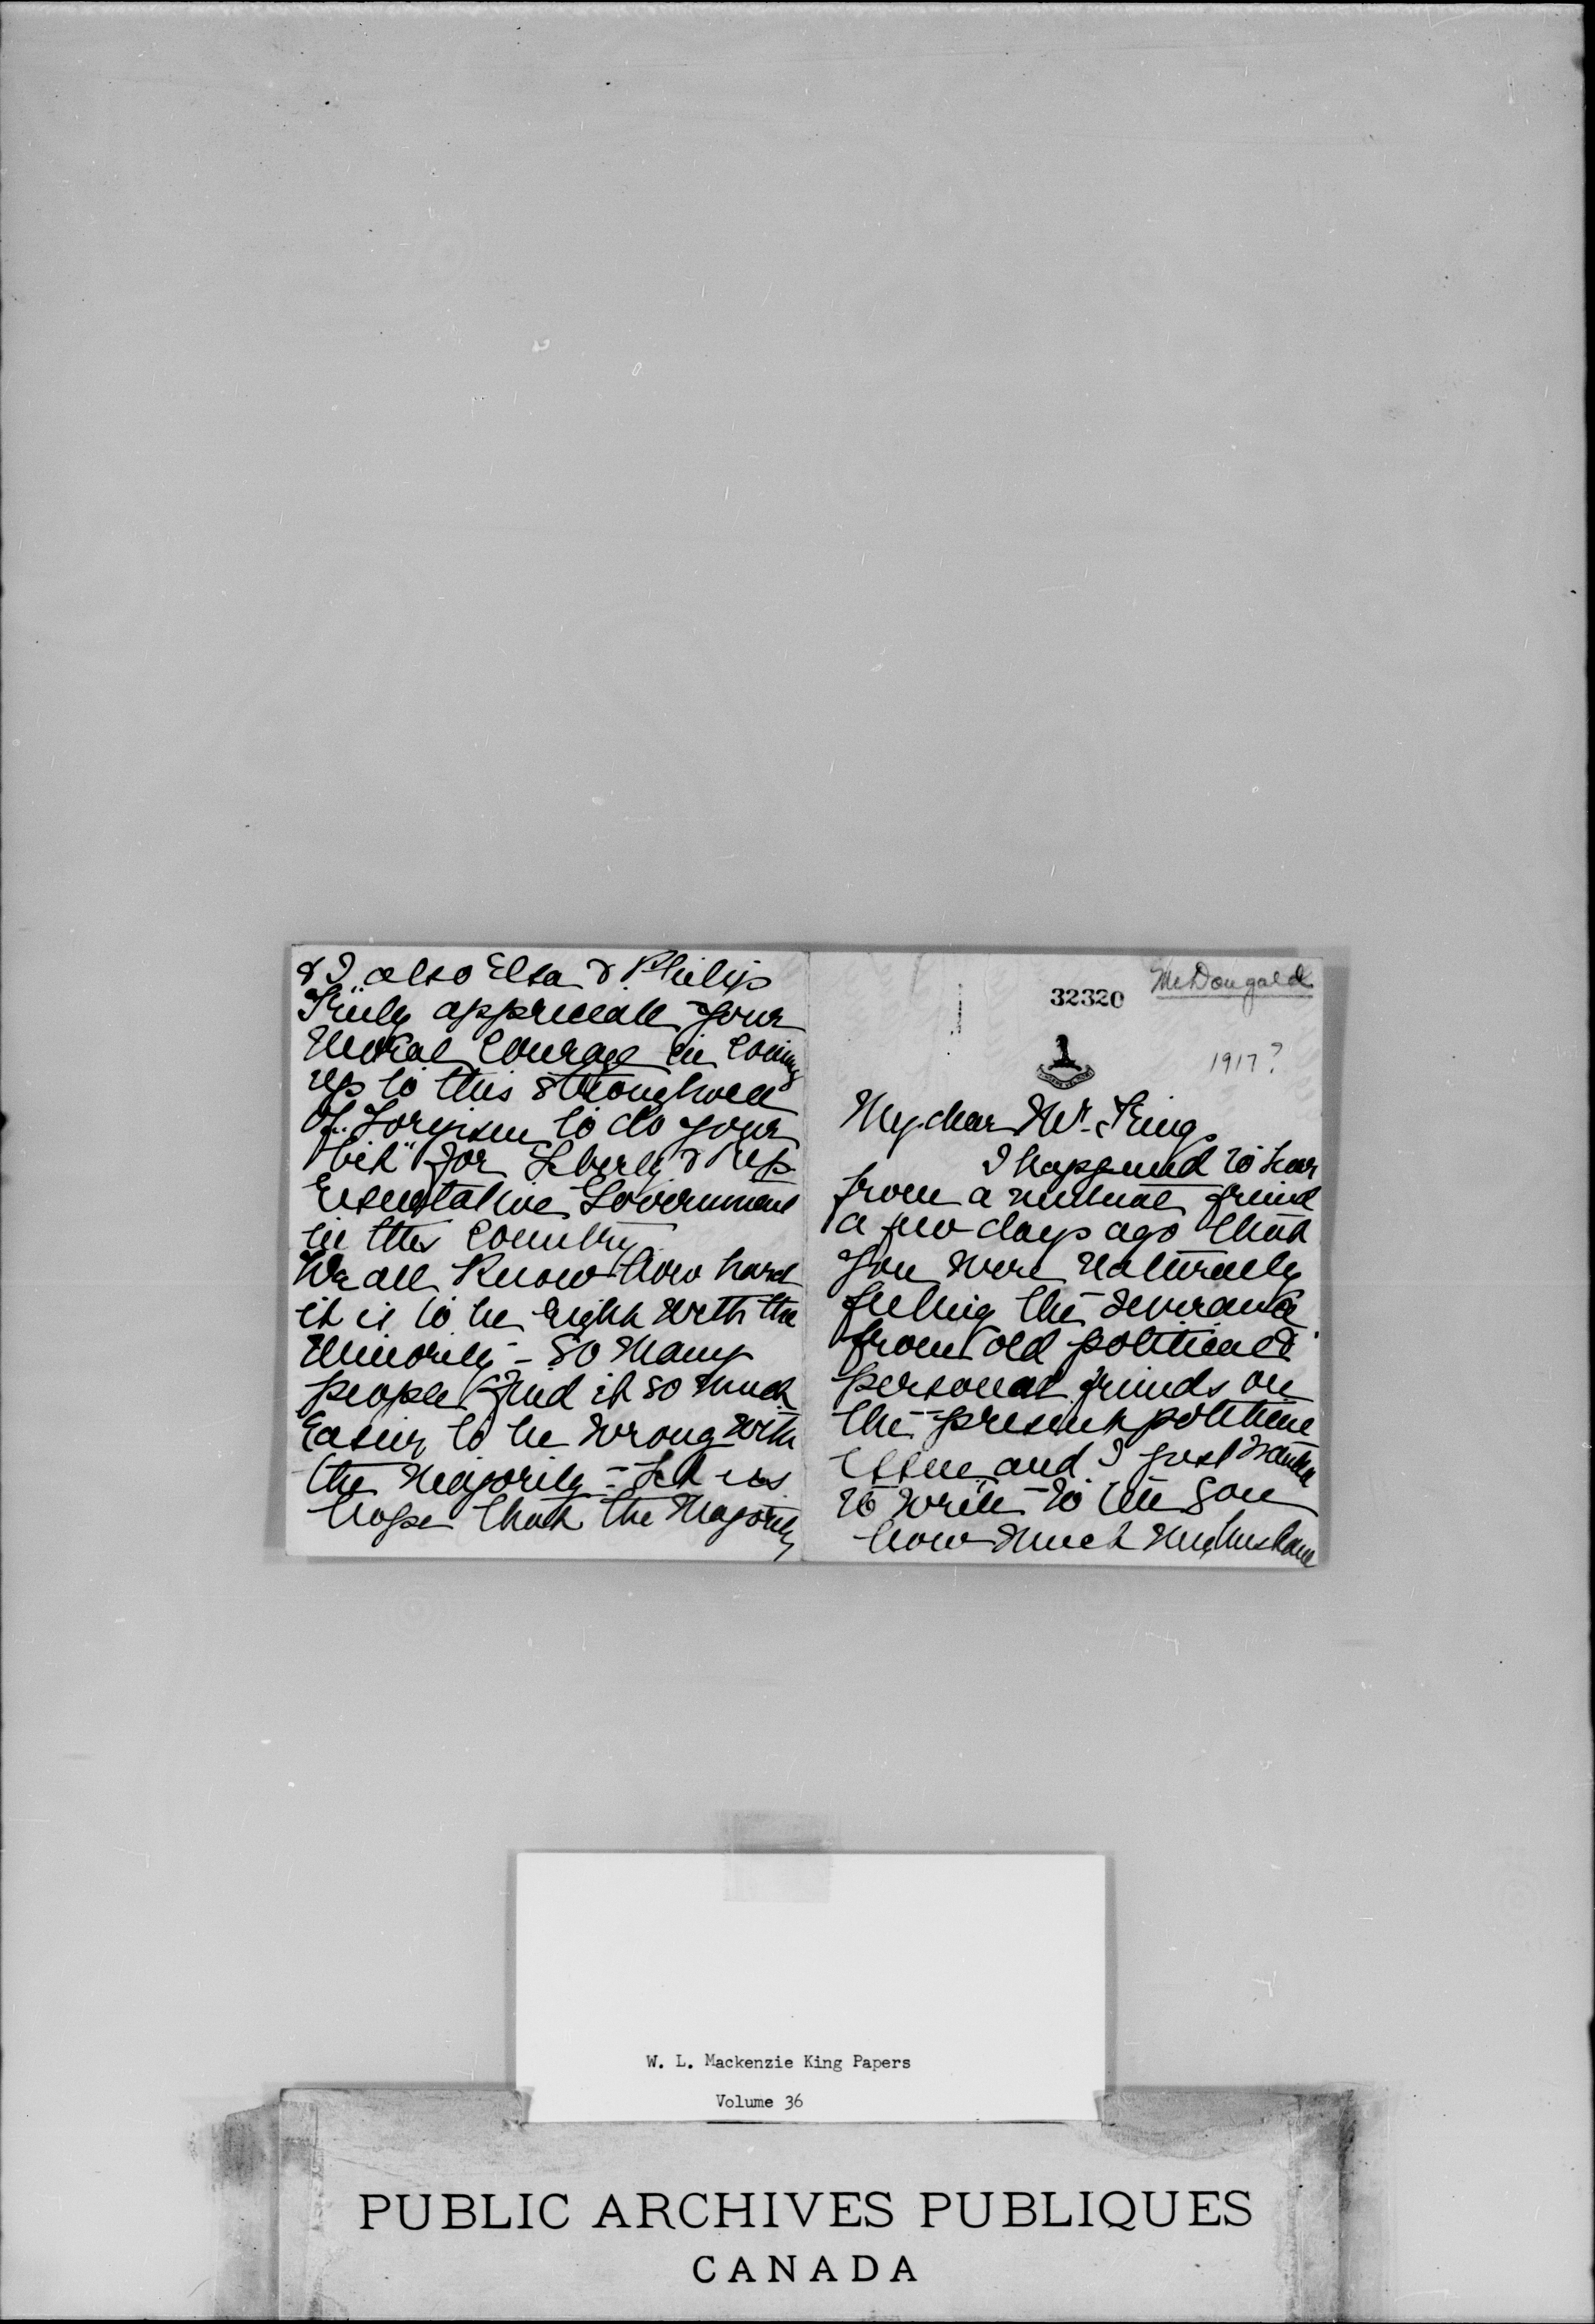 McDougald
32320
1917?
My dear Mr. King,
I happened to hear
from a mutual friend
a few days ago that
you were naturally
feeling the severance
from old political &
personal friends on
the present political
issue and I just want
to write to tell you
how much my husband
& I also Elsa & Philip
Truly appreciate your
moral courage in coming
up to this stronghold
of Toryism to do your
"bit" for Liberty & Rep
resentative Government
in this country
We all know how hard
it is to be right with the
minority - So many
people find it so much
easier to be wrong with
the majority - Let us
hope that the majority
W. L. Mackenzie King Papers
Volume 36
PUBLIC ARCHIVES PUBLIQUES
CANADA